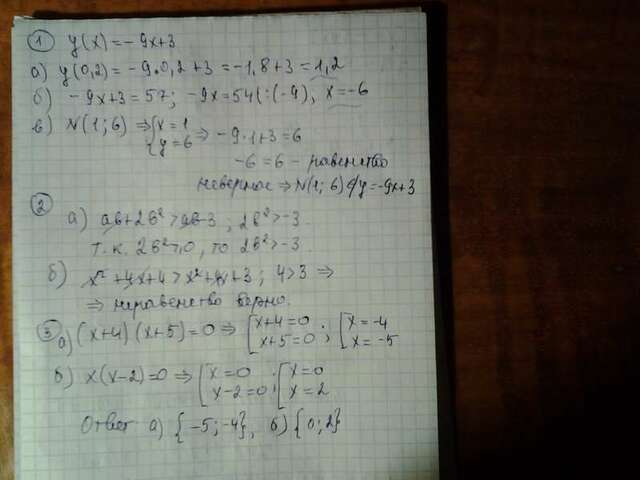 ① y(x) = -9x+3
а) y(0,2) = -9·0,2+3 = -1,8+3 = 1,2
б) -9x+3=57; -9x=54(:(-9), x=-6
в) N(1;6) ⇒ {x=1 ⇒ -9·1+3=6
{y=6
-6=6 - равенство
неверное ⇒ N(1;6)∉y=-9x+3
② а) ab+2b²>ab-3; 2b²>-3.
т.к. 2b²≥0, то 2b²>-3.
б) x²+4x+4>x²+4x+3; 4>3 ⇒
⇒ неравенство верно.
③ а) (x+4)(x+5)=0 ⇒ [x+4=0 ; [x=-4
[x+5=0 [x=-5
б) x(x-2)=0 ⇒ [x=0 ; [x=0
[x-2=0 [x=2
Ответ а) {-5;-4}, б) {0;2}